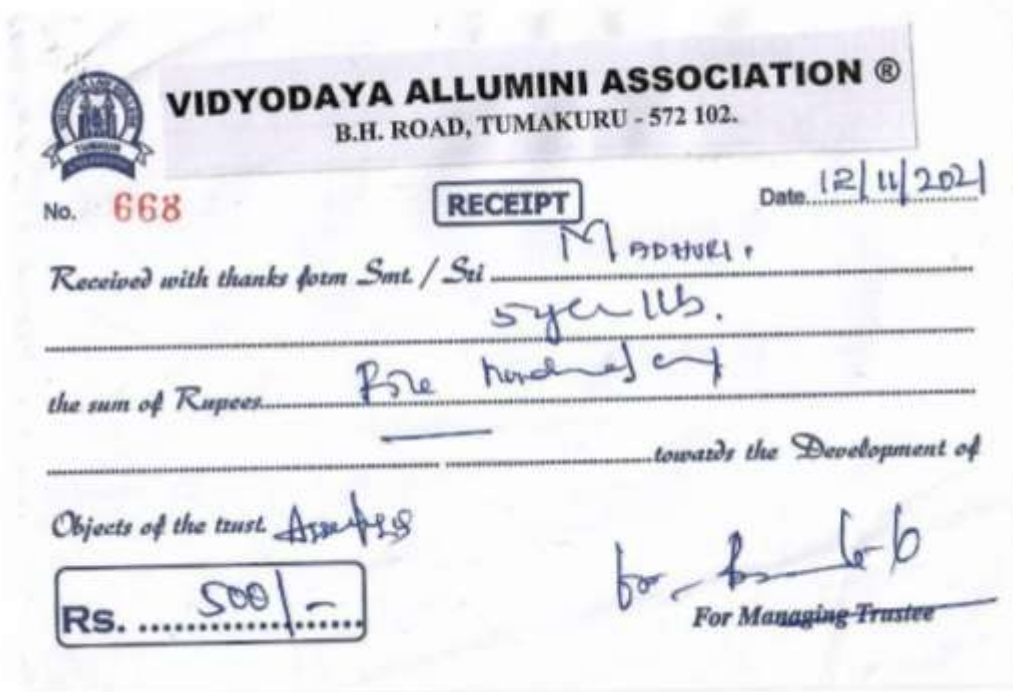 VIDYODAYA ALLUMINI ASSOCIATION ®
B.H. ROAD, TUMAKURU - 572 102.
TUMKUR
No. 668
RECEIPT
Date 12/11/2021
Received with thanks form Smt. / Sri MADHURI.
5 year llb.
the sum of Rupees Five hundred only
towards the Development of
Objects of the trust.
Rs. 500/-
For Managing Trustee